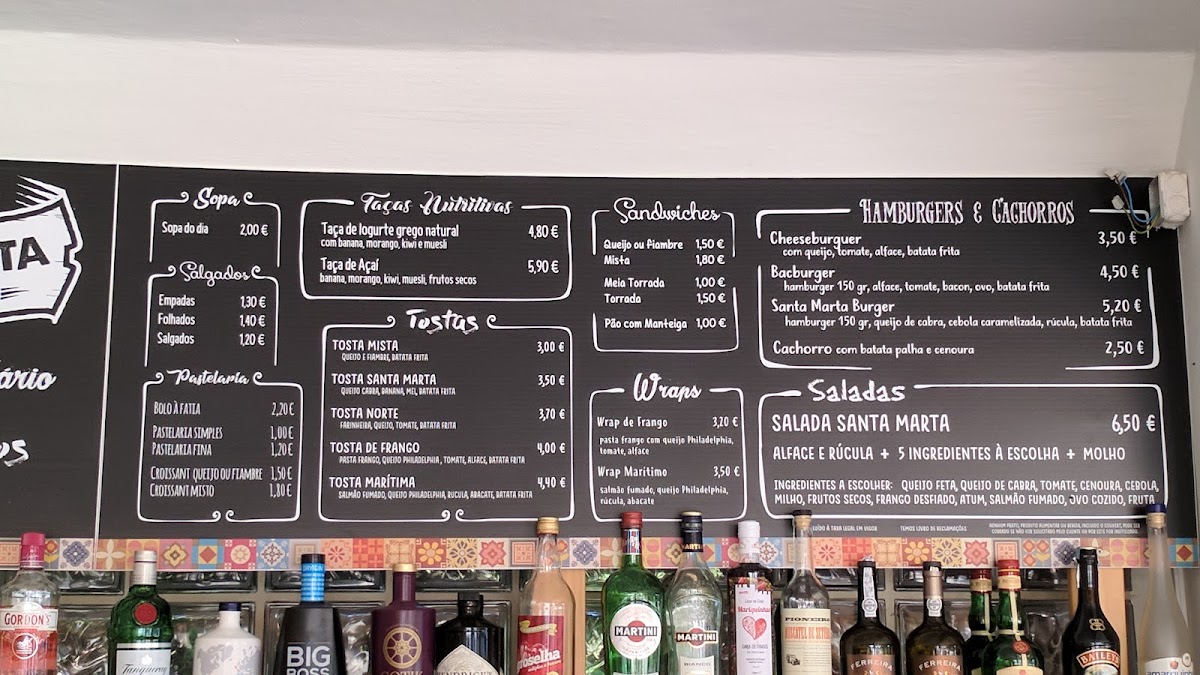 TA
ário
os
Sopa
Sopa do dia 2,00 €
Salgados
Empadas 1,30 €
Folhados 1,40 €
Salgados 1,20 €
Pastelaria
BOLO À FATIA 2,20 €
PASTELARIA SIMPLES 1,00 €
PASTELARIA FINA 1,20 €
CROISSANT QUEIJO OU FIAMBRE 1,50 €
CROISSANT MISTO 1,80 €
Taças Nutritivas
Taça de Iogurte grego natural 4,80 €
com banana, morango, kiwi e muesli
Taça de Açaí 5,90 €
banana, morango, kiwi, muesli, frutos secos
Tostas
TOSTA MISTA 3,00 €
QUEIJO E FIAMBRE, BATATA FRITA
TOSTA SANTA MARTA 3,50 €
QUEIJO CABRA, BANANA, MEL, BATATA FRITA
TOSTA NORTE 3,70 €
FARINHEIRA, QUEIJO, TOMATE, BATATA FRITA
TOSTA DE FRANGO 4,00 €
PASTA FRANGO, QUEIJO PHILADELPHIA , TOMATE, ALFACE, BATATA FRITA
TOSTA MARÍTIMA 4,40 €
SALMÃO FUMADO, QUEIJO PHILADELPHIA, RUCULA, ABACATE, BATATA FRITA
Sandwiches
Queijo ou fiambre 1,50 €
Mista 1,80 €
Meia Torrada 1,00 €
Torrada 1,50 €
Pão com Manteiga 1,00 €
Wraps
Wrap de Frango 3,20 €
pasta frango com queijo Philadelphia,
tomate, alface
Wrap Marítimo 3,50 €
salmão fumado, queijo Philadelphia,
rúcula, abacate
HAMBURGERS & CACHORROS
Cheeseburguer 3,50 €
com queijo, tomate, alface, batata frita
Bacburger 4,50 €
hamburger 150 gr, alface, tomate, bacon, ovo, batata frita
Santa Marta Burger 5,20 €
hamburger 150 gr, queijo de cabra, cebola caramelizada, rúcula, batata frita
Cachorro com batata palha e cenoura 2,50 €
Saladas
SALADA SANTA MARTA 6,50 €
ALFACE E RÚCULA + 5 INGREDIENTES À ESCOLHA + MOLHO
INGREDIENTES A ESCOLHER: QUEIJO FETA, QUEIJO DE CABRA, TOMATE, CENOURA, CEBOLA,
MILHO, FRUTOS SECOS, FRANGO DESFIADO, ATUM, SALMÃO FUMADO, OVO COZIDO, FRUTA
TEMOS LIVRO DE RECLAMAÇÕES
GORDON'S
Tanqueray
BIG
BOSS
MARTINI
MARTINI
BIANCO
Mariquinhas
PIONEIRO
MOSCATEL DE SETÚBAL
FERREIRA
FERREIRA
BAILEYS